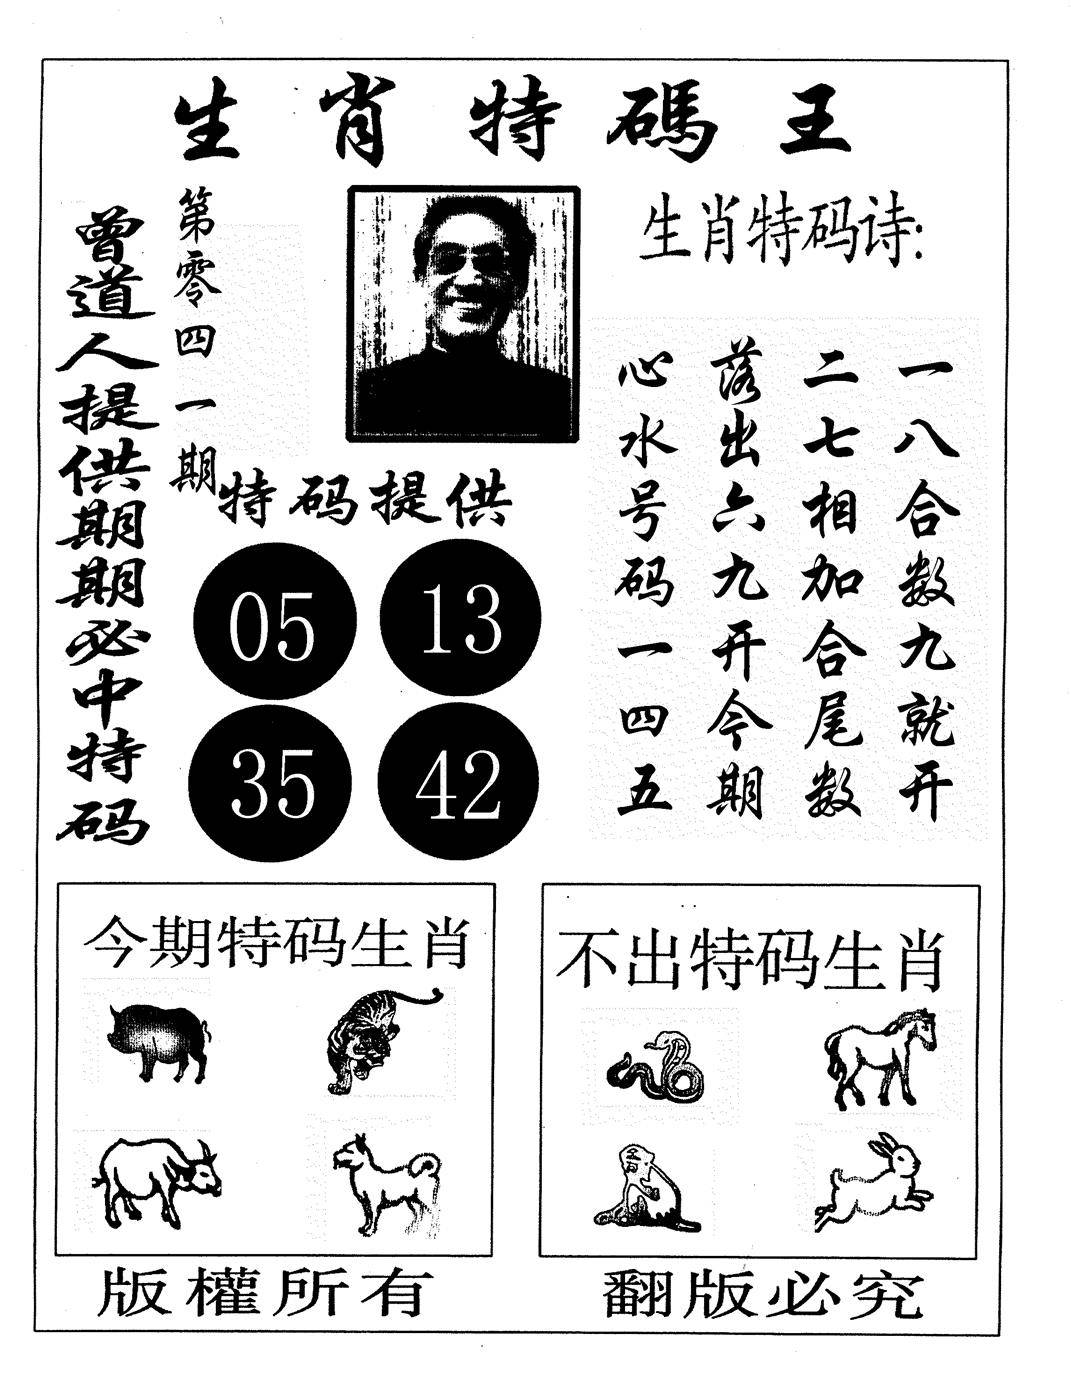 生肖特碼王
曾道人提供期期必中特码
第零四一期
生肖特码诗:
一八合数九就开
二七相加合尾数
落出六九开今期
心水号码一四五
特码提供
05 13
35 42
今期特码生肖
不出特码生肖
版權所有
翻版必究